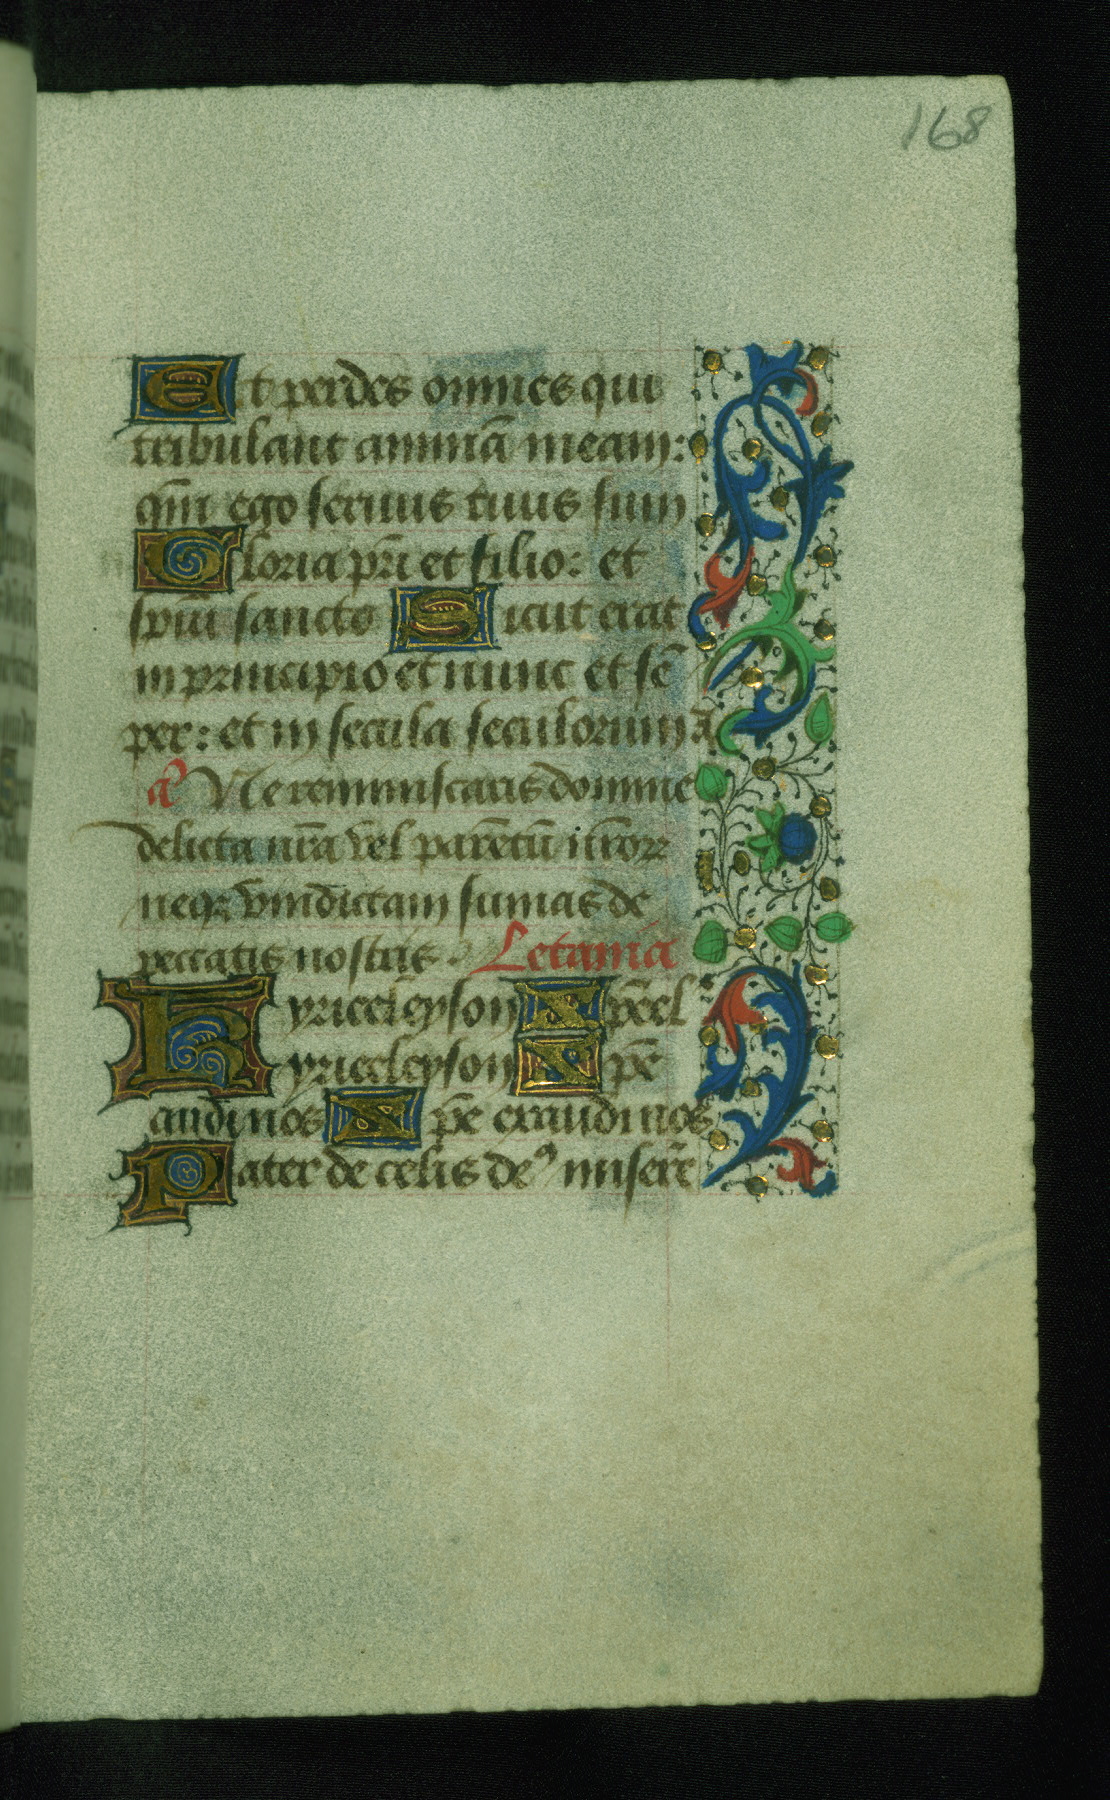 168
Et perdes omnes qui
tribulant animā meam:
qm̄ ego seruus tuus sum
Gloria pr̄i et filio: et
sp̄ui sancto Sicut erat
in principio et nunc et sē
per: et in secula seculorum A
a Ne reminiscaris domine
delicta nr̄a vel parētū
neqꝫ vindictam sumas de
peccatis nostris. Letania
Kyrieeleyson Xp̄eel
kyrieeleyson Xp̄e
audi nos Xp̄e exaudi nos
Pater de celis deꝰ miserē